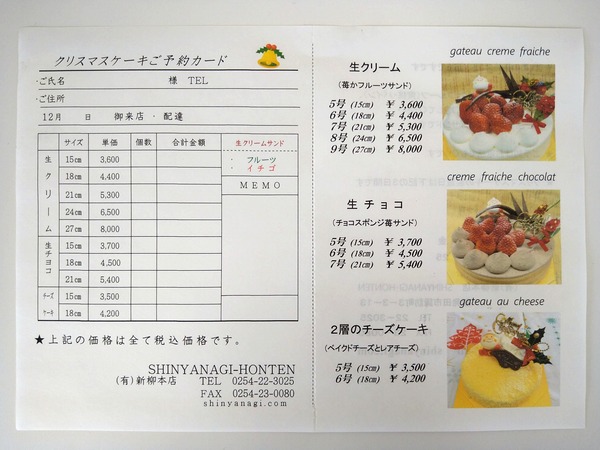 クリスマスケーキご予約カード
・ご氏名 様 TEL
・ご住所
12月 日 御来店 ・ 配達
サイズ 単価 個数 合計金額 生クリームサンド
生クリーム
15㎝ 3,600
18㎝ 4,400
21㎝ 5,300
24㎝ 6,500
27㎝ 8,000
生チョコ
15㎝ 3,700
18㎝ 4,500
21㎝ 5,400
チーズケーキ
15㎝ 3,500
18㎝ 4,200
・ フルーツ
・ イチゴ
MEMO
★上記の価格は全て税込価格です。
SHINYANAGI-HONTEN
(有)新柳本店 TEL 0254-22-3025
FAX 0254-23-0080
shinyanagi.com
gateau creme fraiche
生クリーム
(苺かフルーツサンド)
5号 (15㎝) ¥ 3,600
6号 (18㎝) ¥ 4,400
7号 (21㎝) ¥ 5,300
8号 (24㎝) ¥ 6,500
9号 (27㎝) ¥ 8,000
creme fraiche chocolat
生チョコ
(チョコスポンジ苺サンド)
5号 (15㎝) ¥ 3,700
6号 (18㎝) ¥ 4,500
7号 (21㎝) ¥ 5,400
gateau au cheese
2層のチーズケーキ
(ベイクドチーズとレアチーズ)
5号 (15㎝) ¥ 3,500
6号 (18㎝) ¥ 4,200